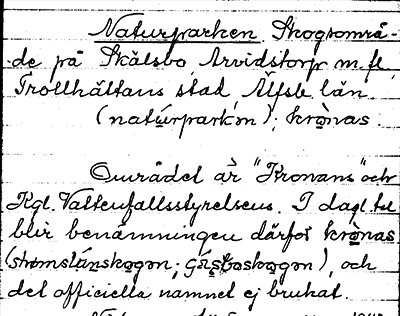 Naturparken. Skogsområ-
de på Skälsbo, Arvidstorp m. fl.
Trollhättans stad Älfsb. län
(natúrpark'ən); krònas.
Området är "Kronans" och
Kgl. Vattenfallsstyrelsens. I dagl. tal
blir benämningen därför krònas
och
det officiella namnet ej brukat.